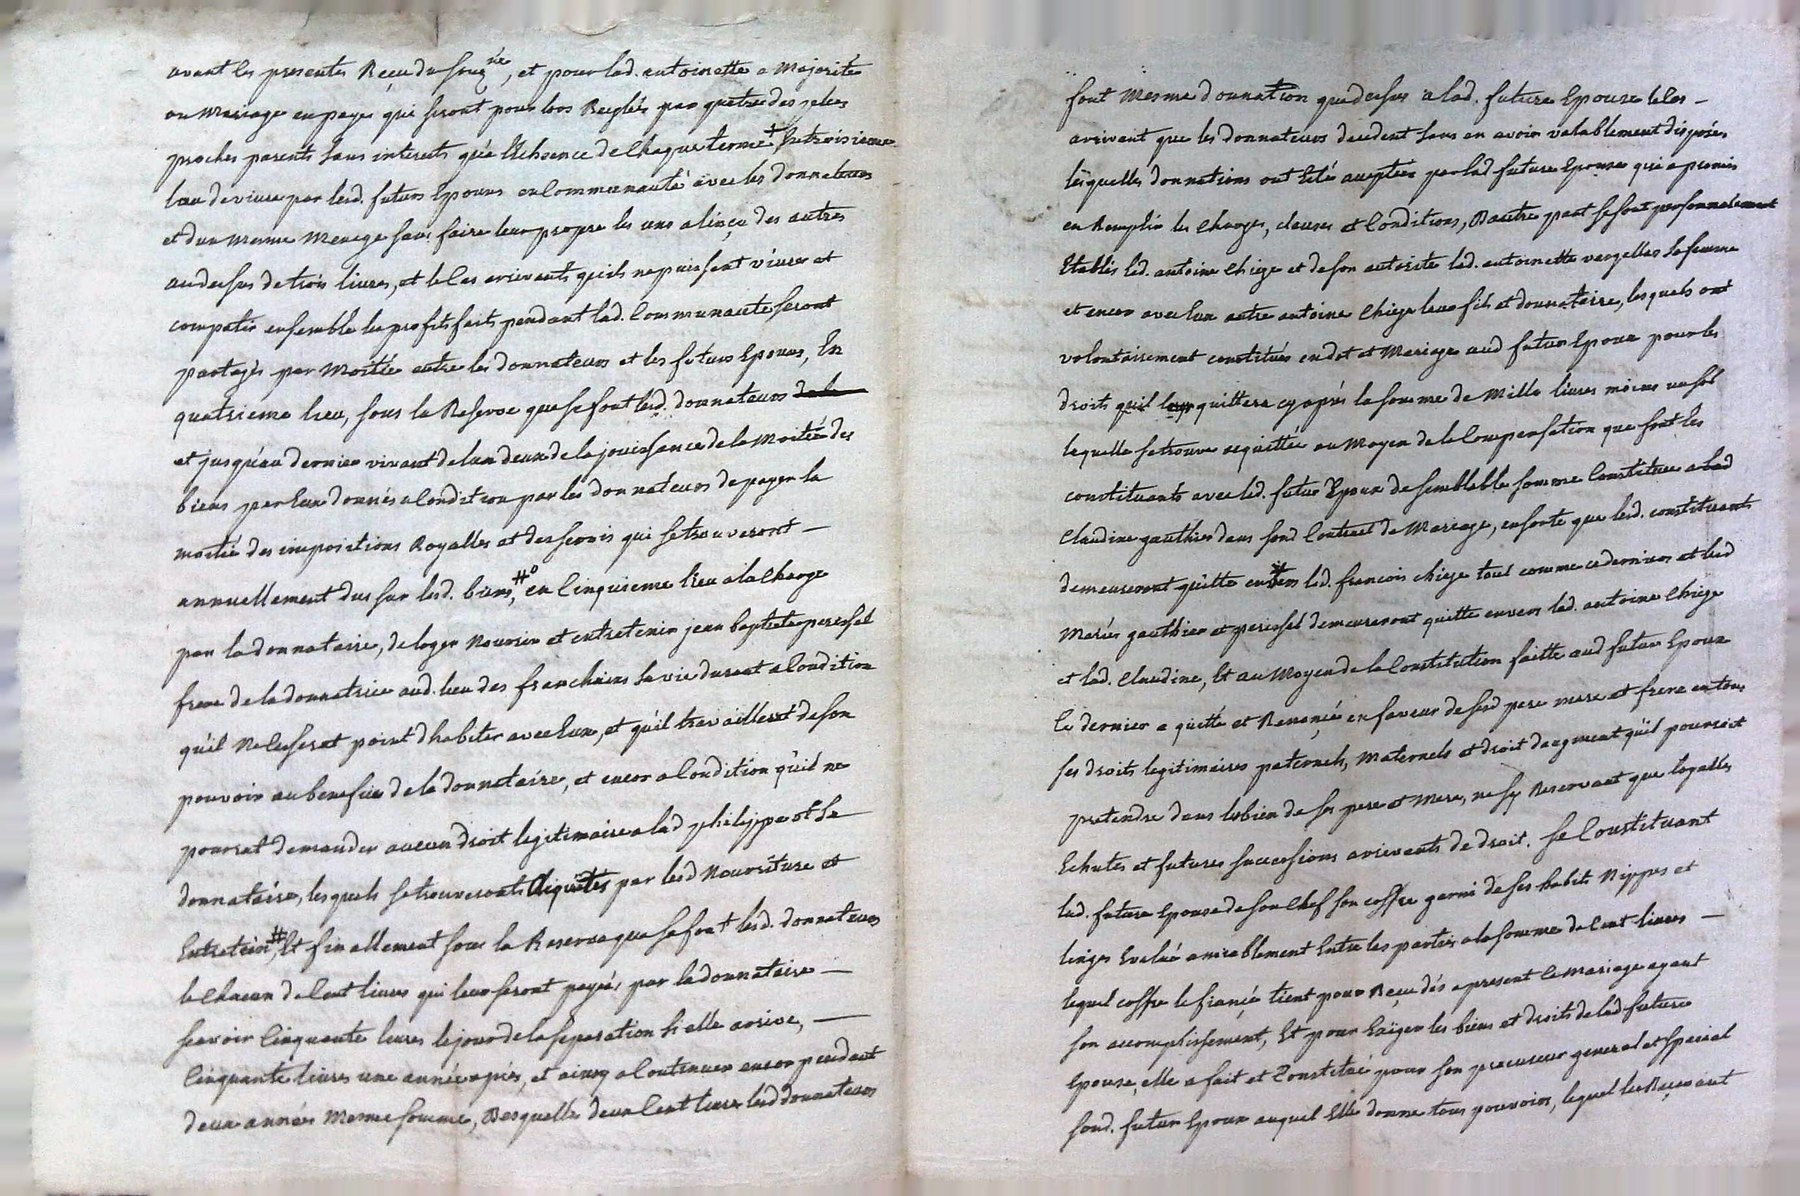 avant les presentes Reçu du souz.né, et pour lad. antoinette a Majorité
ou Mariage en paye qui seront pour lors Reglés par quatre des
proches parents sans interests qu'a l'Echeance de Chaque terme + En troisieme
lieu de vivre par lesd. futurs Epoux en Communauté avec les donnateurs
et d'un Mesme Menage sans faire leur propre les uns a linçu des autres
au dessus de trois livres, et le Cas arrivants qu'ils ne puissent vivres et
compatir ensemble les profits faits pendant lad. Communauté seront
partagés par Moitié entre les donnateurs et les futurs Epoux, En
quatrieme lieu, sous la Reserve que se font lesd. donnateurs
et jusqu'au dernier vivant de l'un d'eux de la jouissance de la Moitié des
biens par Eux donnés a Condition par les donnateurs de payer la
moitié des impositions Royalles et des servis qui se trouveront —
annuellement dus sur lesd. biens, # en Cinquieme lieu a la Charge
par la donnataire, de loger Nourrir et entretenir jean baptiste perissel
frere de la donnatrice aud. lieu des franchises sa vie durant a Condition
qu'il Ne Cesserat point d'habiter avec Eux, et qu'il travaillerat de son
pouvoir au benefice de la donnataire, et encor a Condition qu'il ne
pourrat demander aucun droit legitimaire a lad philippe et Sa
donnataire, lesquels se trouveront Aquittés par lesd Nourriture et
Entretein, # Et finallement sous la Reserve que se font lesd. donnateurs
le Chacun de Cent livres qui leur seront payés par la donnataire —
scavoir Cinquante livres le jour de la separation si elle arrive, —
Cinquante livres une année apres, et ainsy a Continuer encor pendant
deux années Mesme somme, Desquelles deux Cent livres lesd donnateurs
font Mesme donnation que dessus a lad. future Epouse le Cas —
arrivant que les donnateurs decedent sans en avoir valablement disposés
lesquelles donnations ont Eté acceptées par lad future Epouse qui a promis
en Remplir les Charges, clauses et Conditions, D'autre part se sont personnelement
Etablis led. antoine Chieze et de son autorité lad. antoinette vergelles sa femme
et encor avec eux autre antoine Chieze leur fils et donnataire, lesquels ont
volontairement constitués en dot et Mariage aud futur Epoux pour les
droits qu'il quittera cy après la somme de Mille livres moins un sol
laquelle se trouve aquittée au Moyen de la Compensation que font les
constituants avec led. futur Epoux de semblable somme Constituée a lad
Claudine gauthier dans sond Contract de Mariage, ensorte que lesd. constituants
demeureront quitte envers led. françois chieze tout comme ce dernier et lesd
Mariés gauthier et perissel demeureront quitte envers led. antoine Chieze
et lad. Claudine, Et au Moyen de la Constitution faitte aud futur Epoux
Ce dernier a quitté et Renonçé en faveur de sesd pere mere et frere en tous
ses droits legitimaires paternels, Maternels et droit d'augment qu'il pourroit
pretendre dans les bien de ses pere et Mere, ne s'y Reservant que loyalles
Echutes et futures successions arrivants de droit. Se Constituant
lad. future Epouse de son Chef son coffre garni de ses habits Nippes et
linges Evalué amiablement Entre les parties a la somme de Cent livres —
lequel coffre le fiancé tient pour Reçu dés a present le mariage ayant
son accomplissement, Et pour Exiger les biens et droits de lad future
Epouse, elle a fait et Constitué pour son procureur general et special
sond. futur Epoux auquel Elle donne tous pouvoirs, lequel les Reçevant